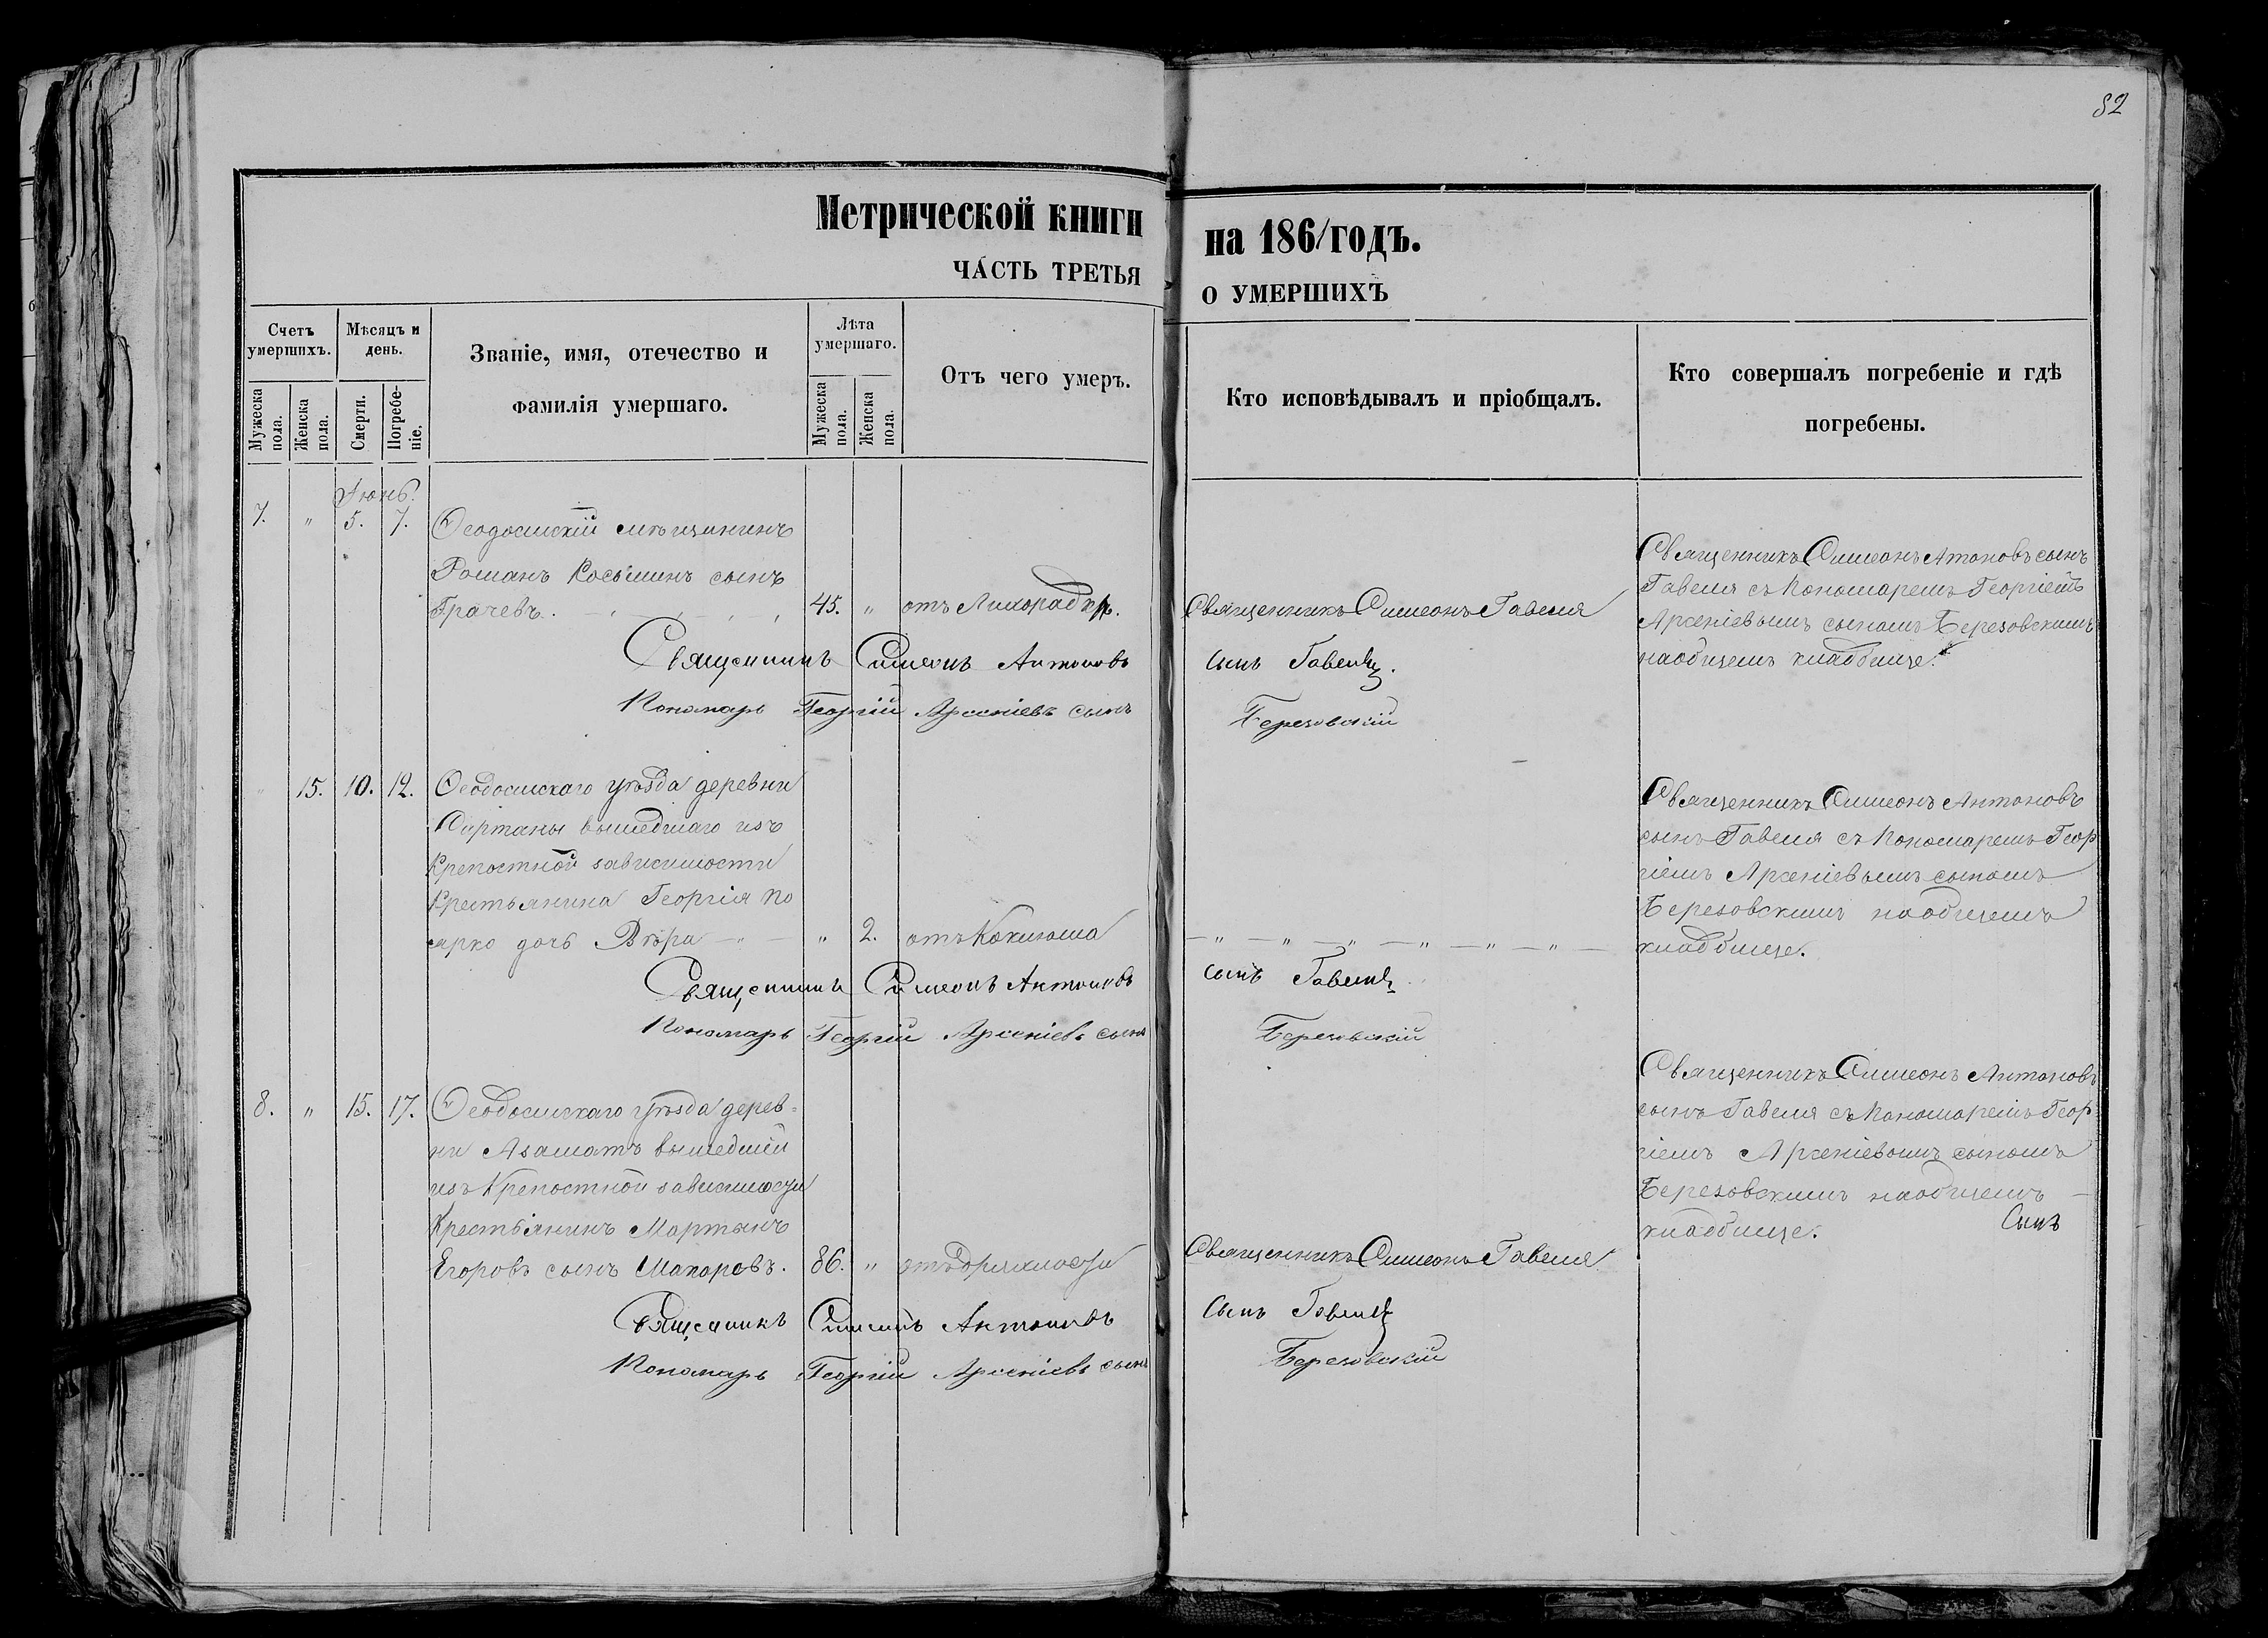 82
Метрической книги на 186/годъ.
ЧАСТЬ ТРЕТЬЯ О УМЕРШИХЪ
Счетъ умершихъ.
Мѣсяцъ и день.
Званіе, имя, отечество и фамилія умершаго.
Лѣта умершаго.
Отъ чего умеръ.
Кто исповѣдывалъ и пріобщалъ.
Кто совершалъ погребеніе и гдѣ погребены.
Мужеска пола.
Женска пола.
Смерти.
Погребеніе.
Мужеска пола.
Женска пола.
Іюнь.
7. " 5. 7. Ѳеодосійскій мѣщанинъ
Романъ Косьминъ сынъ
Грачевъ. 45. " отъ Лихорадки. Священникъ Симеонъ Гавеля
Священникъ Симеонъ Антоновъ сынъ
Гавеля съ Пономаремъ Георгіемъ
Арсеніевымъ сыномъ Березовскимъ
наобщемъ кладбище.
Священникъ Симеонъ Антоновъ сынъ Гавеля.
Пономарь Георгій Арсеніевъ сынъ Березовскій
15. 10. 12. Ѳеодосійскаго уѣзда деревни
Сартаны вышедшаго изъ
Крепостной зависимости
Крестьянина Георгія По
ярко дочь Вѣра " 2. отъ Коклюша
Священникъ Симеонъ Антоновъ
сынъ Гавеля съ Пономаремъ Геор
гіемъ Арсеніевымъ сыномъ
Березовскимъ наобщемъ
кладбище.
Священникъ Симеонъ Антоновъ сынъ Гавеля
Пономарь Георгій Арсеніевъ сынъ Березовскій
8. " 15. 17. Ѳеодосійскаго уѣзда дерев-
ни Азаматъ вышедшій
изъ Крепостной зависимости
Крестьянинъ Мартынъ
Егоровъ сынъ Макаровъ. 86. " отъ дряхлости Священникъ Симеонъ Гавеля
Священникъ Симеонъ Антоновъ
сынъ Гавеля съ Пономаремъ Геор
гіемъ Арсеніевымъ сыномъ
Березовскимъ наобщемъ
кладбище. Сынъ
Священникъ Симеонъ Антоновъ Сынъ Гавеля
Пономарь Георгій Арсеніевъ сынъ Березовскій